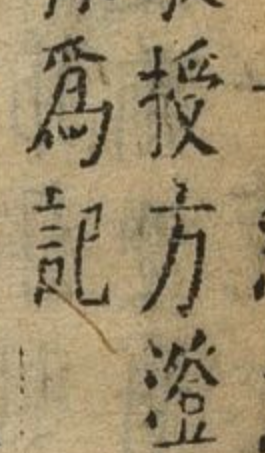 授方澄
爲記